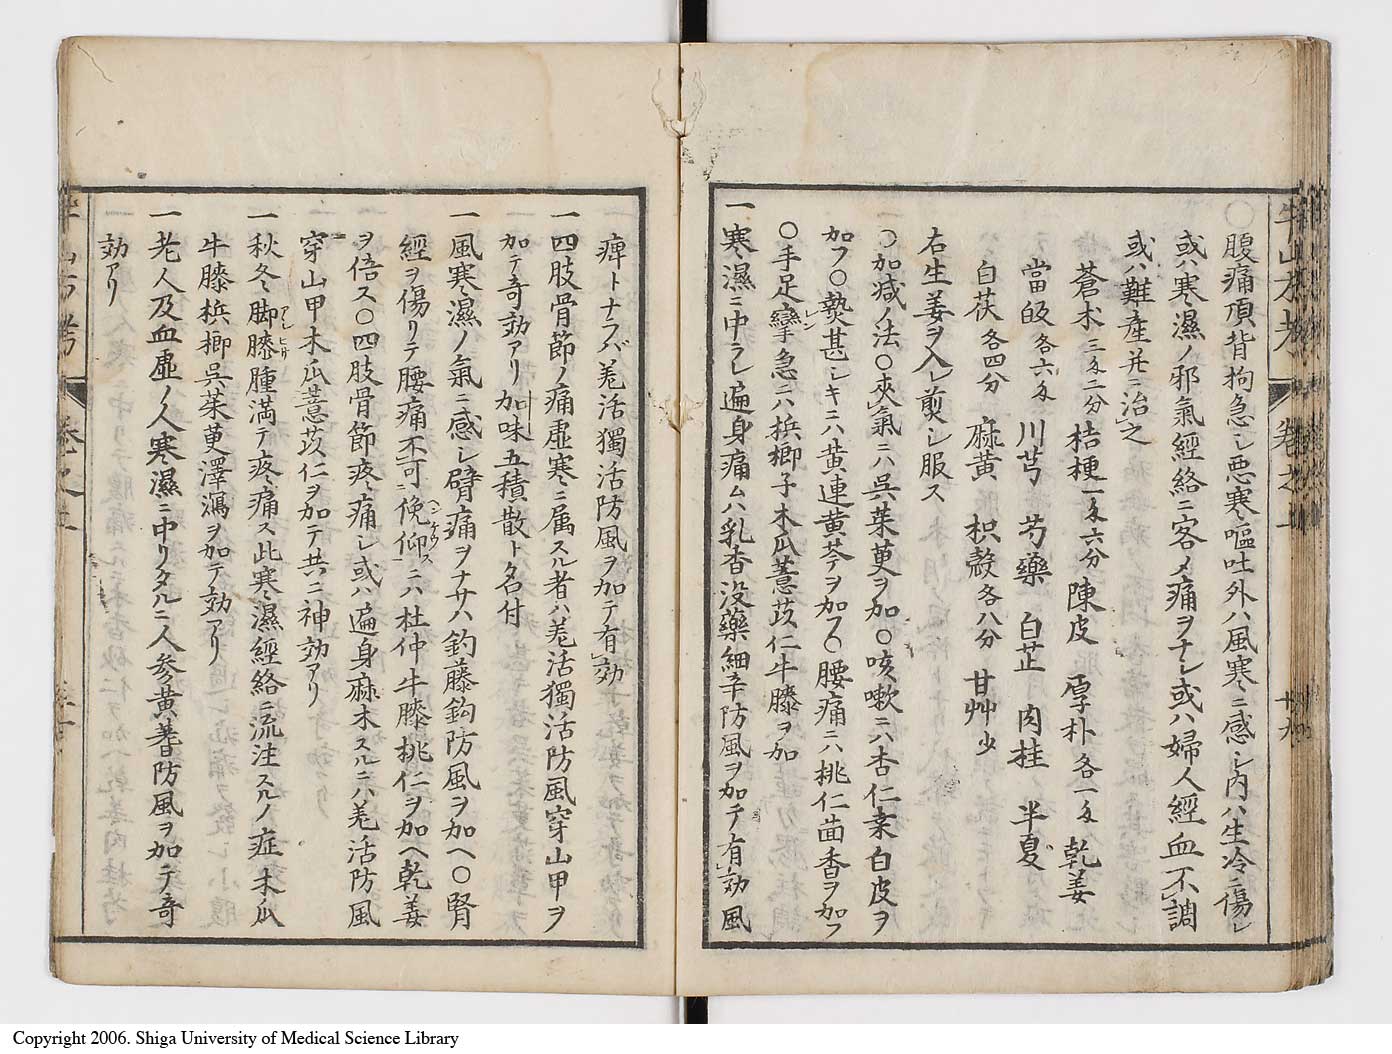 〇腹痛頂背拘急シ悪寒嘔吐外ハ風寒ニ感シ内ハ生冷ニ傷シ
或ハ寒濕ノ邪氣經絡ニ客メ痛ヲナシ或ハ婦人經血不調
或ハ難産並ニ治之
蒼术三匁二分 桔梗一匁六分 陳皮 厚朴各一匁 乾姜
當皈各六匁 川芎 芍藥 白芷 肉桂 半夏
白茯各四分 麻黄 枳殻各八分 甘艸少
右生姜ヲ入レ煎シ服ス
〇加減ノ法〇夾氣ニハ呉茱萸ヲ加〇咳嗽ニハ杏仁桒白皮ヲ
加フ〇熱甚シキニハ黄連黄芩ヲ加フ〇腰痛ニハ桃仁茴香ヲ加フ
〇手足攣急ニハ梹榔子木瓜薏苡仁牛膝ヲ加
一寒濕ニ中ラレ遍身痛ムハ乳香没藥細辛防風ヲ加テ有効風
痺トナラバ羌活獨活防風ヲ加テ有効
一四肢骨節ノ痛虚寒ニ属スル者ハ羌活獨活防風穿山甲ヲ
加テ奇効アリ加味五積散ト名付
一風寒濕ノ氣ニ感シ臂痛ヲナサハ釣藤鈎防風ヲ加ヘ〇腎
經ヲ傷リテ腰痛不可俛仰ニハ杜仲牛膝桃仁ヲ加ヘ乾姜
ヲ倍ス〇四肢骨節疼痛シ或ハ遍身麻木スルニハ羌活防風
穿山甲木瓜薏苡仁ヲ加テ共ニ神効アリ
一秋冬脚膝腫満テ疼痛ス此寒濕經絡ニ流注スルノ症木瓜
牛膝梹榔呉茱萸澤瀉ヲ加テ効アリ
一老人及血虚ノ人寒濕ニ中リタルニ人参黄耆防風ヲ加テ奇
効アリ
Copyright 2006. Shiga University of Medical Science Library